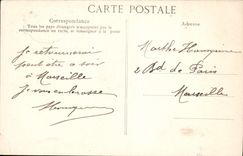 CARTE POSTALE
Correspondance
Tous les pays étrangers n'acceptent pas la correspondance
au recto, se renseigner à la poste
Adresse
Je retournerai
peut être a soir
à Marseille
Je vous embrasse
Marthe
2 Bd de Paris
Marseille